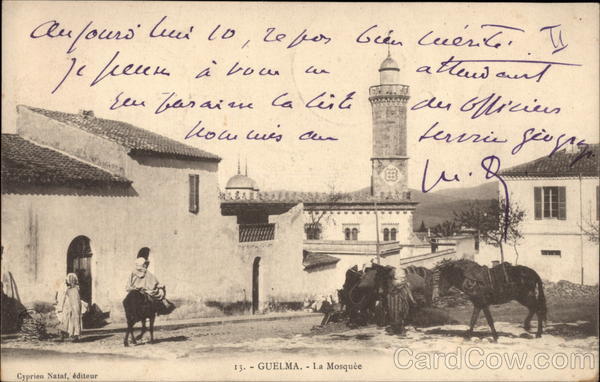 aujourd'hui 10, repos bien mérité. II
je pense à vous en attendant
que paraisse la liste des officiers
nommés au service géogr.
13. - GUELMA. - La Mosquée
Cyprien Nataf, éditeur
CardCow.com